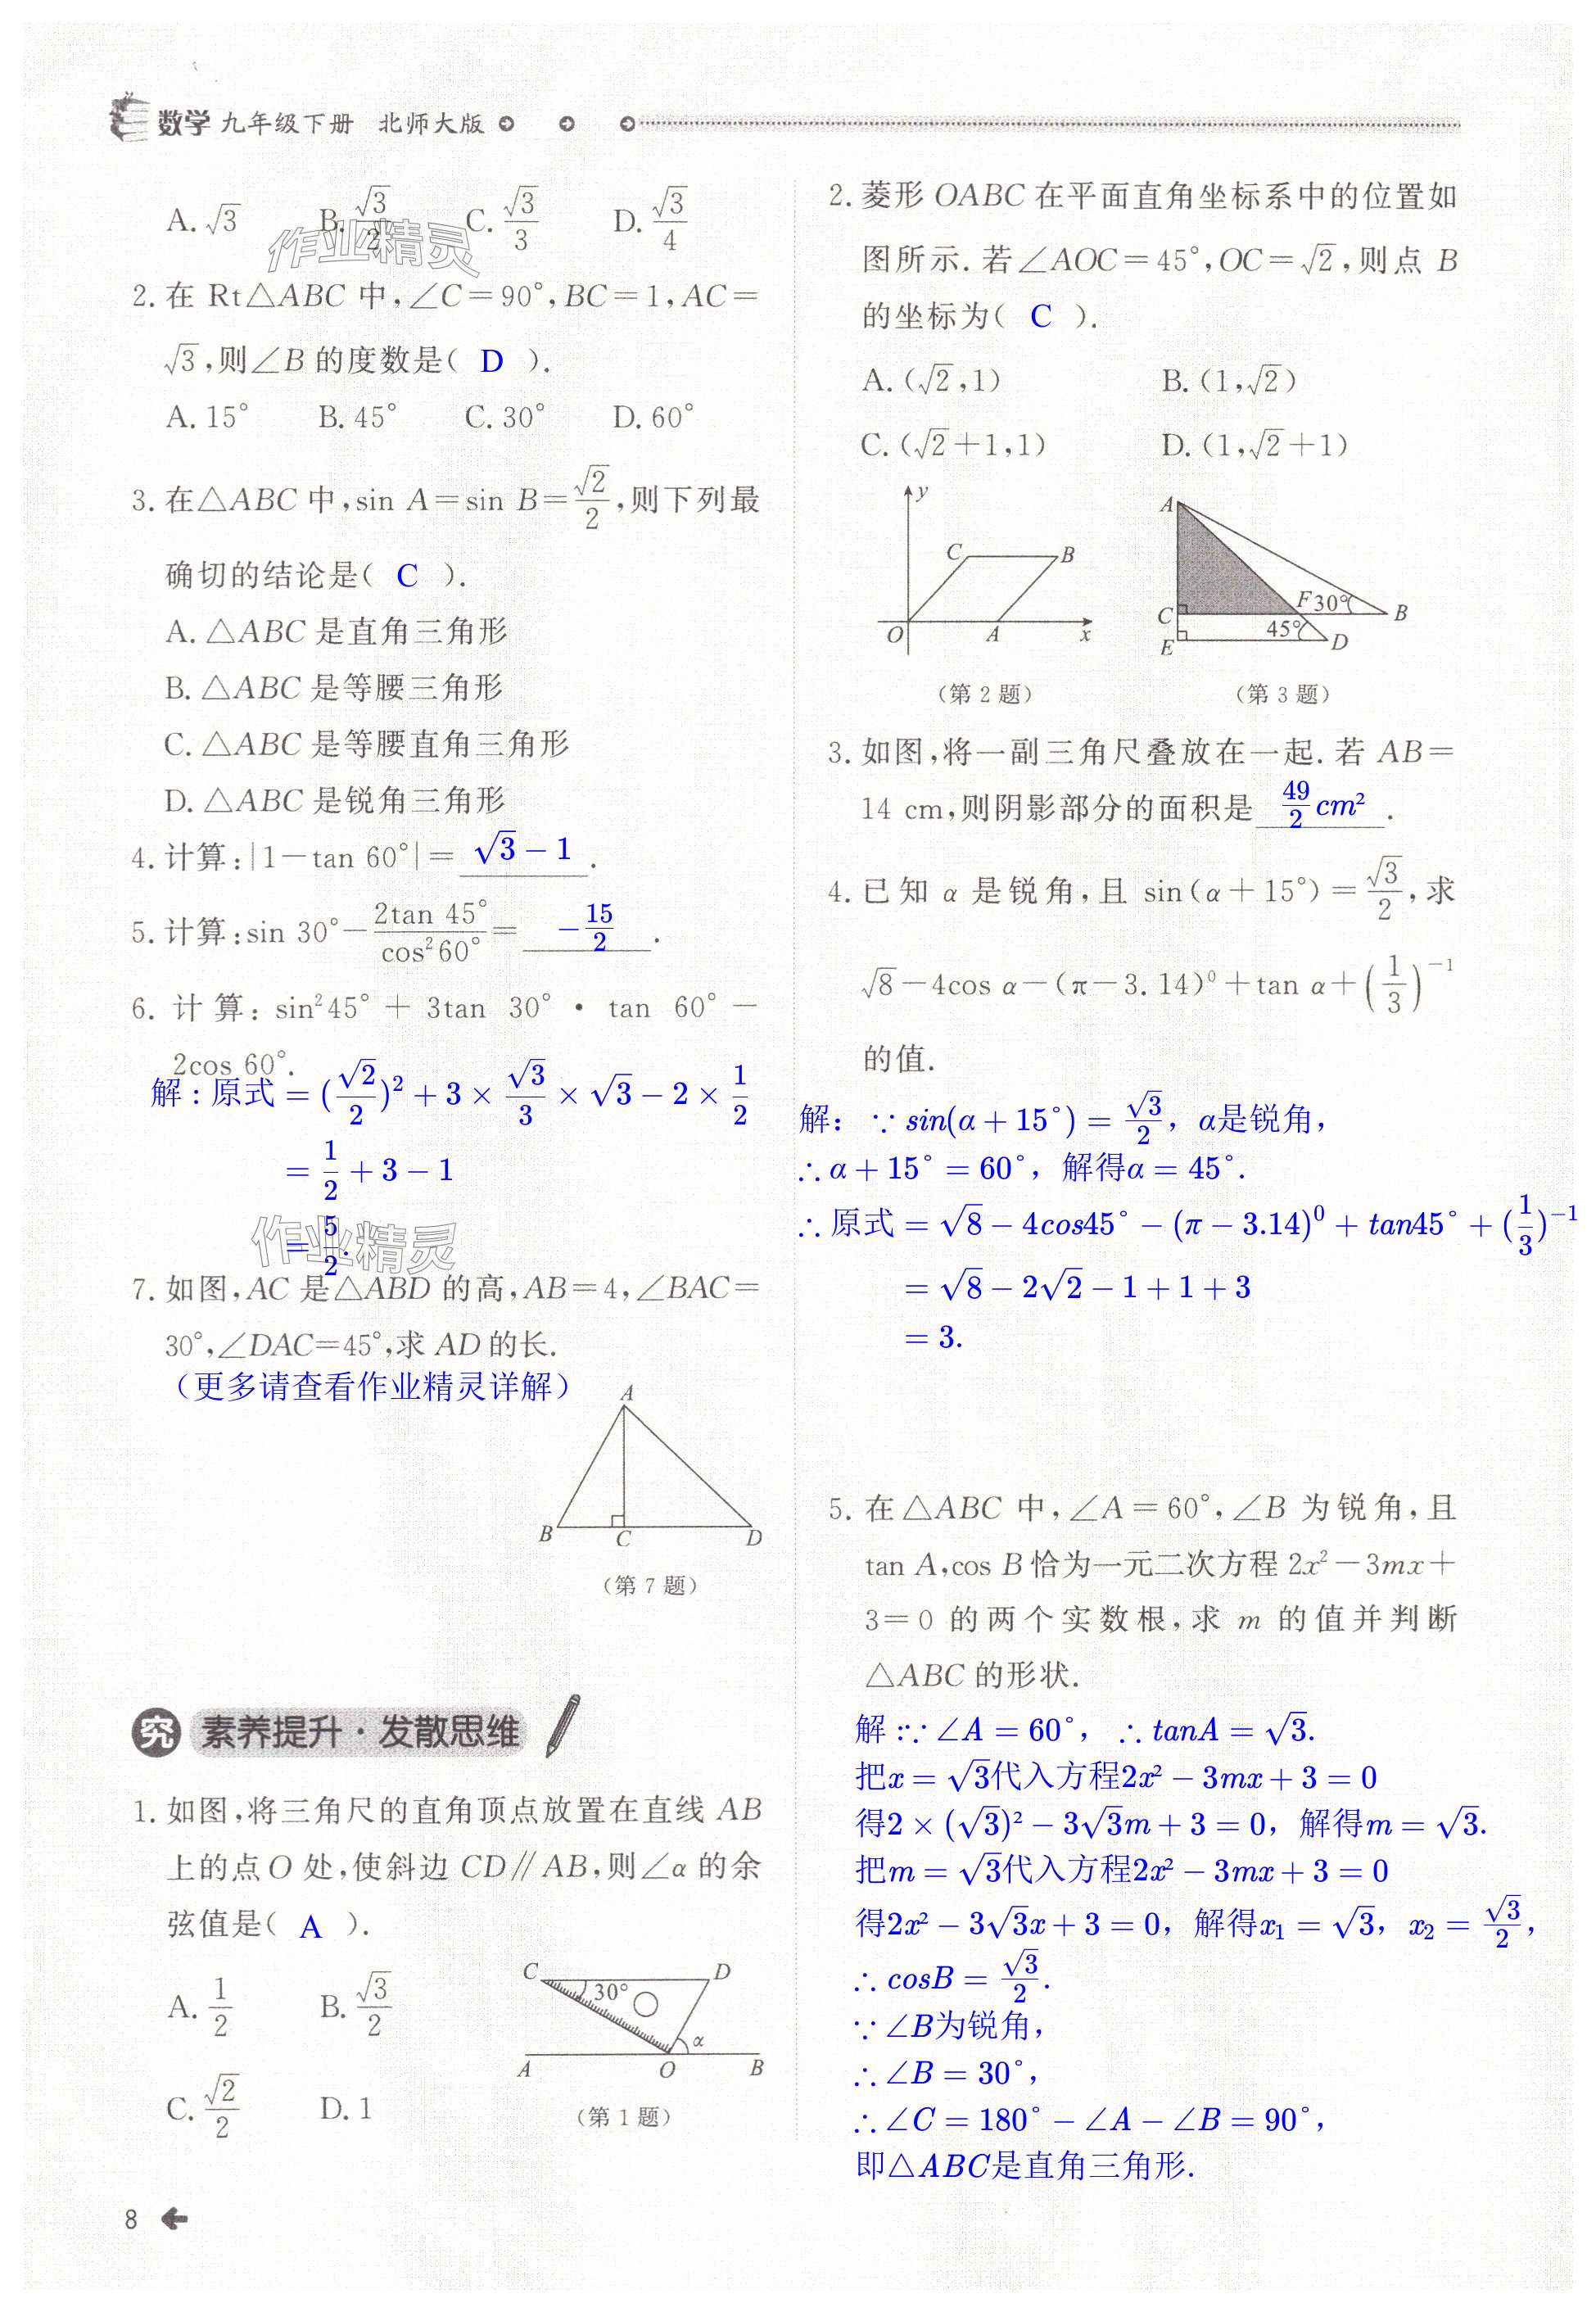 数学 九年级下册 北师大版
A. √3 B. √3/2 C. √3/3 D. √3/4
作业精灵
2. 在 Rt△ABC 中,∠C=90°,BC=1,AC=
√3,则∠B 的度数是( D ).
A. 15° B. 45° C. 30° D. 60°
3. 在△ABC 中,sin A=sin B=√2/2,则下列最
确切的结论是( C ).
A. △ABC 是直角三角形
B. △ABC 是等腰三角形
C. △ABC 是等腰直角三角形
D. △ABC 是锐角三角形
4. 计算:|1-tan 60°|= √3-1 .
5. 计算:sin 30°-2tan 45°/cos²60°= -15/2 .
6. 计算: sin²45° + 3tan 30° · tan 60° -
2cos 60°.
解:原式=(√2/2)²+3×√3/3×√3-2×1/2
=1/2+3-1
=5/2.
作业精灵
7. 如图,AC 是△ABD 的高,AB=4,∠BAC=
30°,∠DAC=45°,求 AD 的长.
(更多请查看作业精灵详解)
A
B C D
(第 7 题)
究 素养提升·发散思维
1. 如图,将三角尺的直角顶点放置在直线 AB
上的点 O 处,使斜边 CD∥AB,则∠α 的余
弦值是( A ).
A. 1/2 B. √3/2
C. √2/2 D. 1
C D
30°
α
A O B
(第 1 题)
8
2. 菱形 OABC 在平面直角坐标系中的位置如
图所示. 若∠AOC=45°,OC=√2,则点 B
的坐标为( C ).
A. (√2,1) B. (1,√2)
C. (√2+1,1) D. (1,√2+1)
y
C B
O A x
(第 2 题)
A
C F 30° B
E 45° D
(第 3 题)
3. 如图,将一副三角尺叠放在一起. 若 AB=
14 cm,则阴影部分的面积是 49/2 cm² .
4. 已知 α 是锐角,且 sin(α+15°)=√3/2,求
√8-4cos α-(π-3.14)⁰+tan α+(1/3)⁻¹
的值.
解: ∵sin(α+15°)=√3/2, α是锐角,
∴α+15°=60°, 解得α=45°.
∴原式=√8-4cos45°-(π-3.14)⁰+tan45°+(1/3)⁻¹
=√8-2√2-1+1+3
=3.
5. 在△ABC 中,∠A=60°,∠B 为锐角,且
tan A,cos B 恰为一元二次方程 2x²-3mx+
3=0 的两个实数根,求 m 的值并判断
△ABC 的形状.
解:∵∠A=60°, ∴tanA=√3.
把x=√3代入方程2x²-3mx+3=0
得2×(√3)²-3√3m+3=0, 解得m=√3.
把m=√3代入方程2x²-3mx+3=0
得2x²-3√3x+3=0, 解得x₁=√3, x₂=√3/2,
∴cosB=√3/2.
∵∠B为锐角,
∴∠B=30°,
∴∠C=180°-∠A-∠B=90°,
即△ABC是直角三角形.